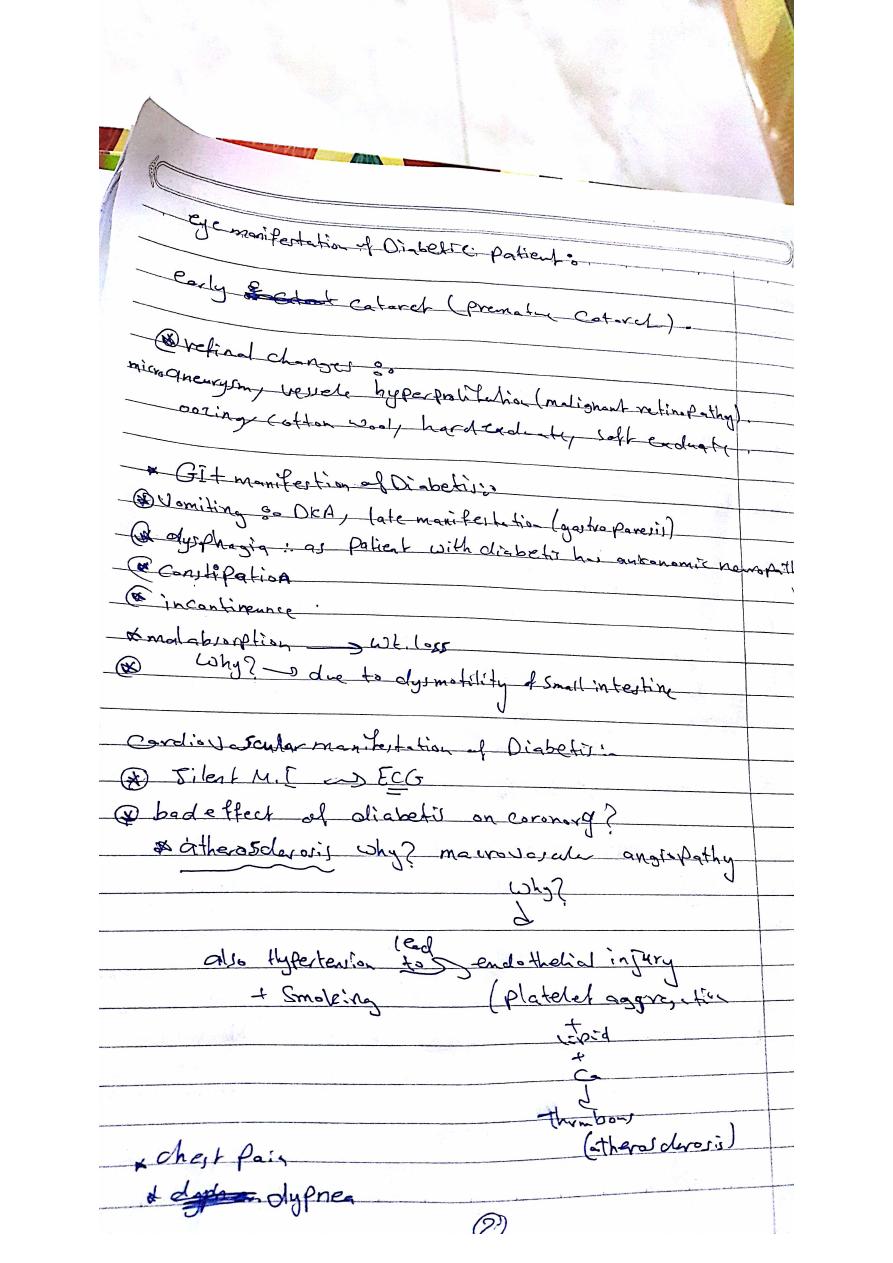 eye manifestation of Diabetic patient:
early cataract (premature cataract).
* retinal changes:
microaneurysm, vessele hyperprolifation (malignant retinopathy).
oozing, cotton wool, hard exduate, soft exduate
* GIt manifestion of Diabetis:
* Vomiting: DKA, late manifestation (gastroparesis)
* dysphagia: as patient with diabetis has autonomic neuropath
* Constipation
* incontinence
* malabsorption → wt. loss
* Why? → due to dysmotility of small intestine
Cardiovascular manifestation of Diabetis:
* Silent M.I → ECG
* bad effect of diabetis on coronary?
* atherosclerosis why? macrovascular angiopathy
why?
↓
also Hypertension lead to → endothelial injury
+ Smoking (platelet aggregation
+
lipid
+
Ca
↓
thrombous
(atherosclerosis)
* chest pain
* dypnea